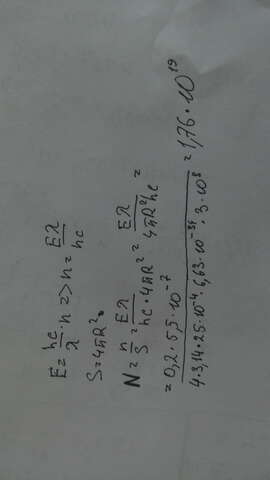 E = hc/λ · n => n = Eλ/hc
S = 4πR².
N = n/S = Eλ/hc · 4πR² = Eλ/4πR²hc =
= 0,2 · 5,5 · 10⁻⁷ / 4 · 3,14 · 25 · 10⁻⁴ · 6,63 · 10⁻³⁴ · 3 · 10⁸ = 1,76 · 10¹⁹